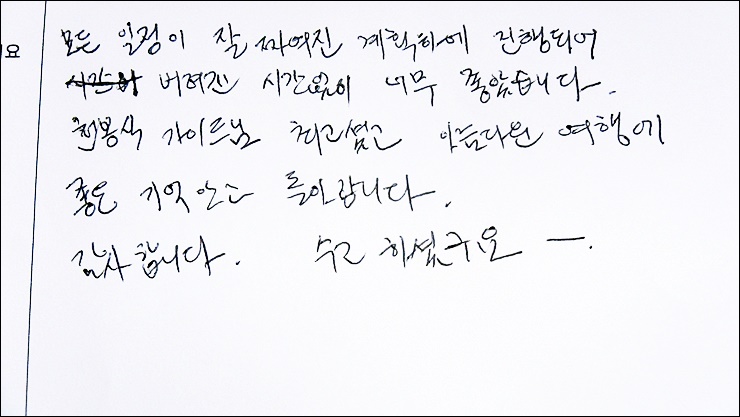 모든 일정이 잘 짜여진 계획하에 진행되어
버려진 시간없이 너무 좋았습니다.
가이드님 최고셨고 아름다운 여행에
좋은 기억 안고 돌아갑니다.
감사합니다. 수고 하셨구요 ー.
요